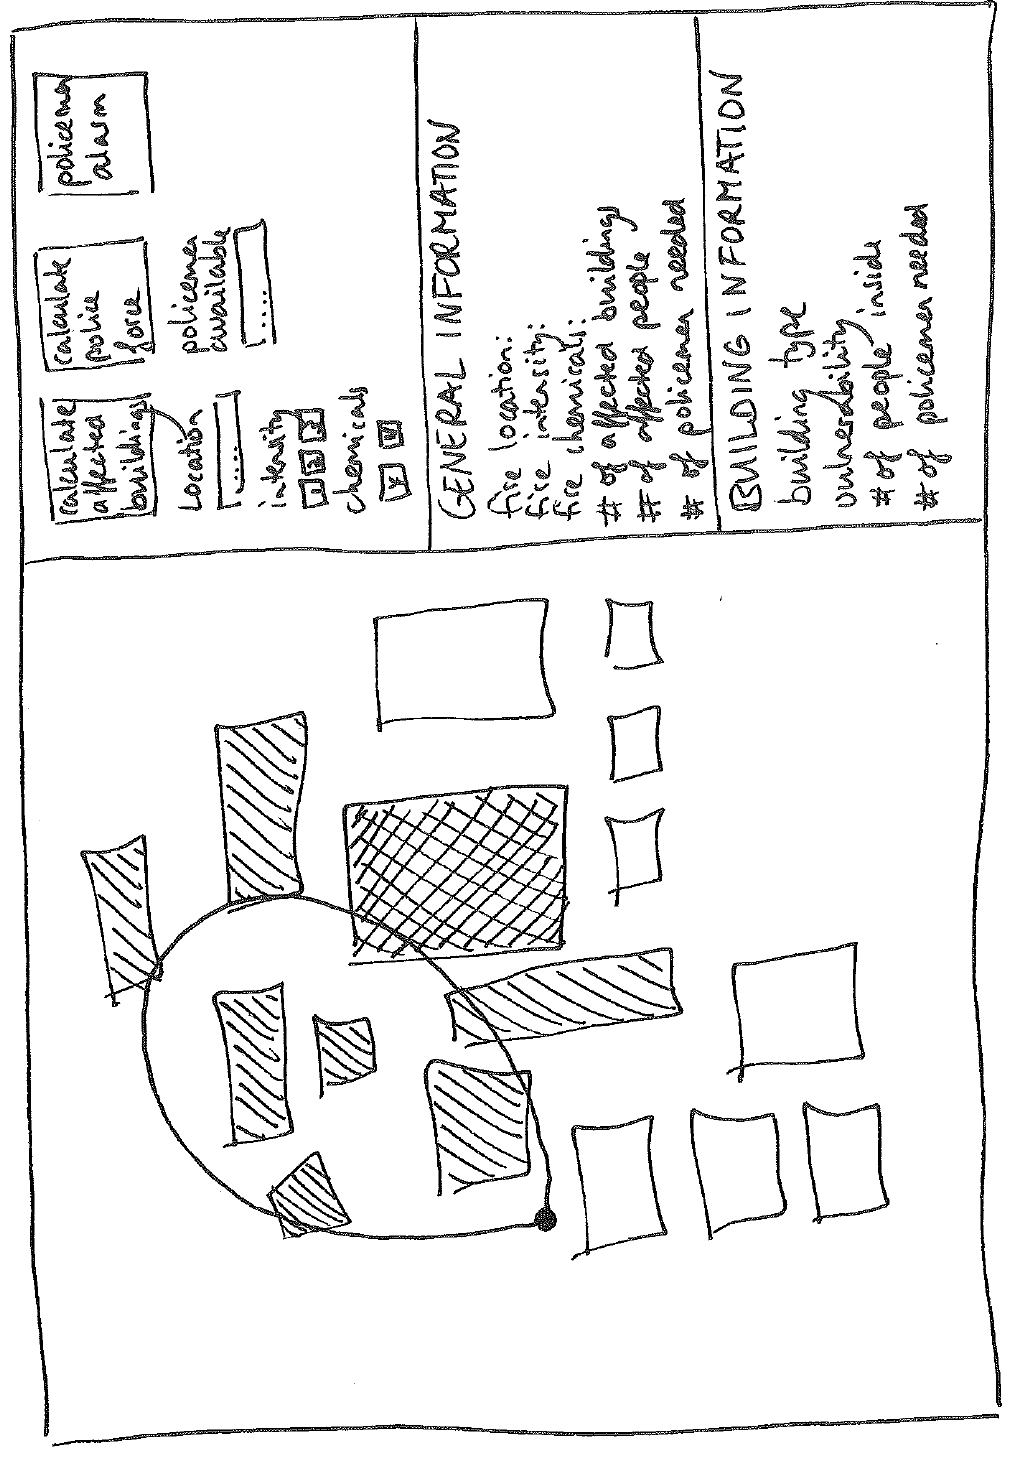 calculate
affected
buildings
calculate
police
force
policemen
alarm
Location
.....
policemen
available
.....
intensity
1 2 3
chemicals
Y N
GENERAL INFORMATION
fire location:
fire intensity:
fire chemicals:
# of affected buildings
# of affected people
# of policemen needed
BUILDING INFORMATION
building type
vulnerability
# of people inside
# of policemen needed